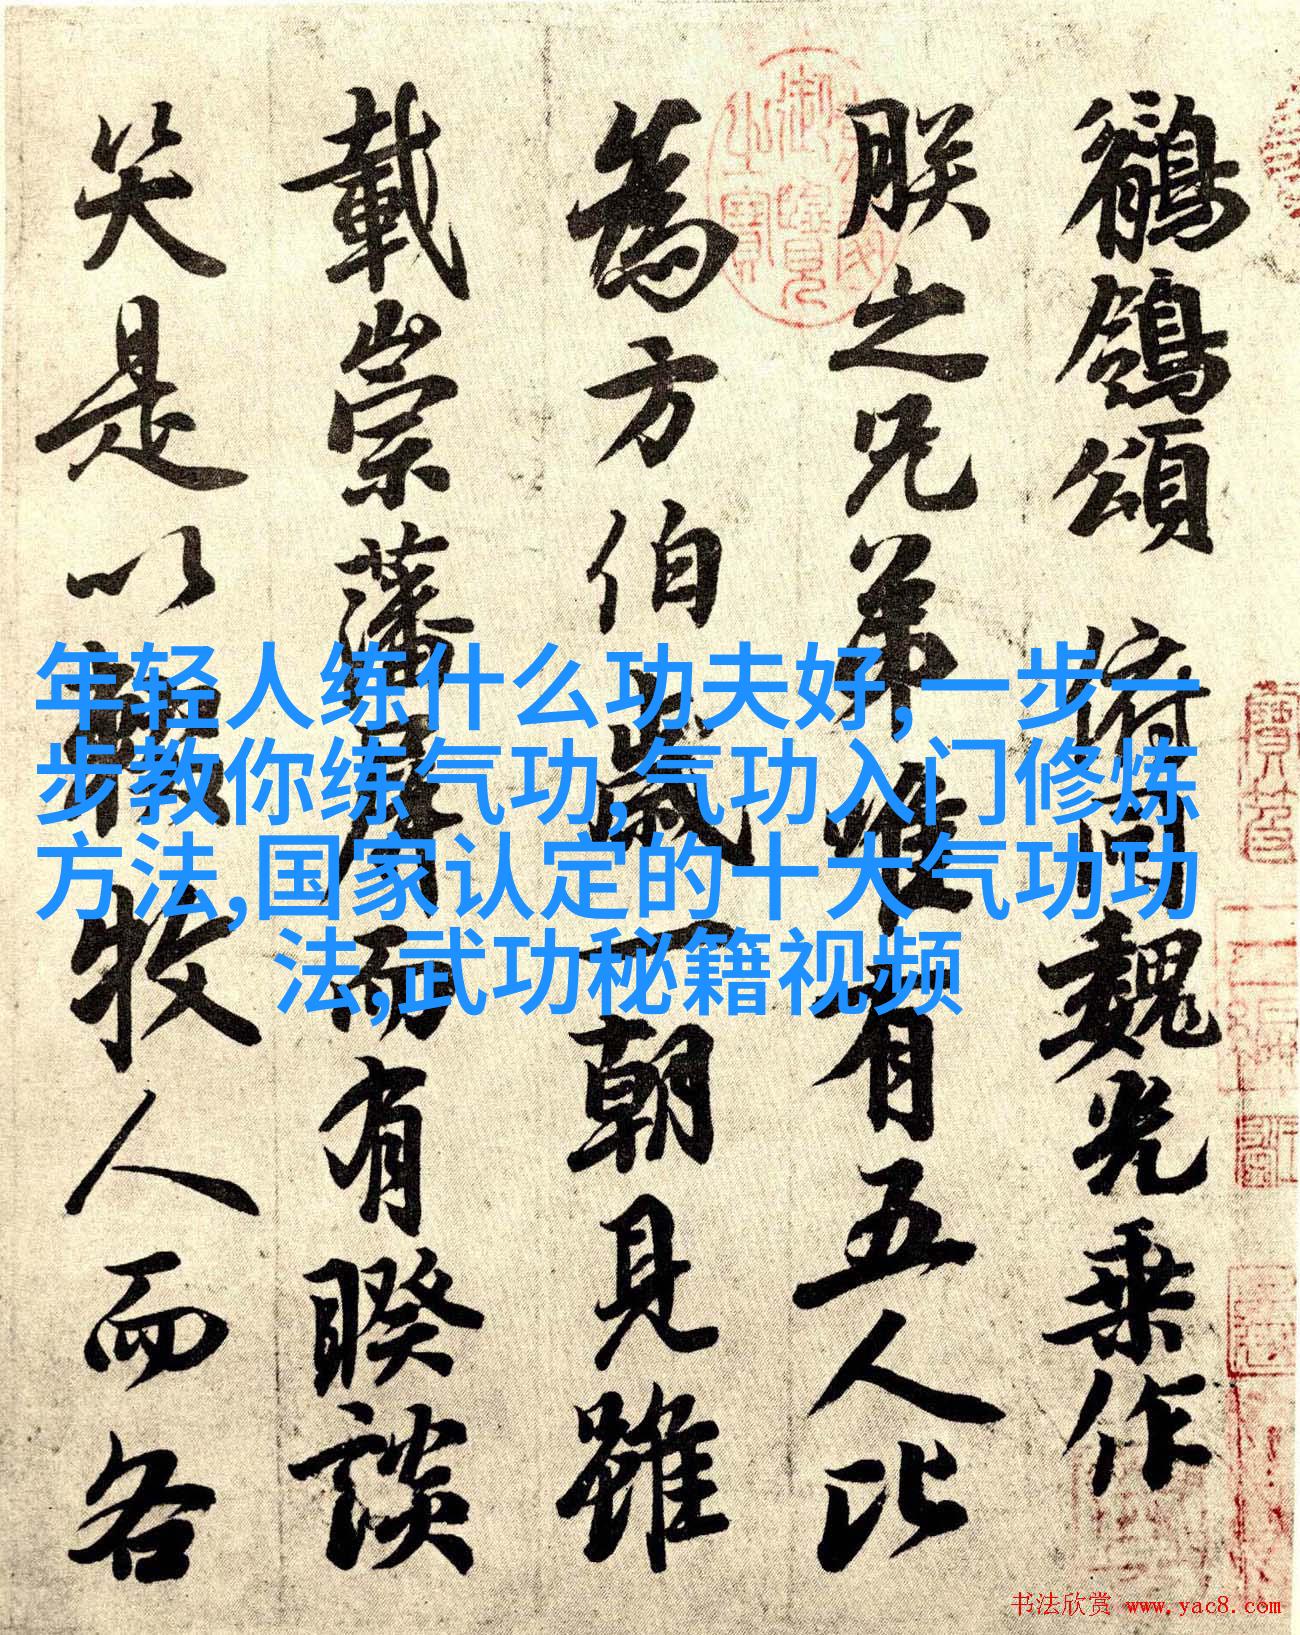 鶺鴒頌 俯同魏光乘作
朕之兄弟唯有五人比
為方伯歲一朝見雖
載崇藩屏而有睽談
笑是以輟牧人而各
年轻人练什么功夫好,一步一
步教你练气功,气功入门修炼
方法,国家认定的十大气功功
法,武功秘籍视频
书法欣赏 www.yac8.com